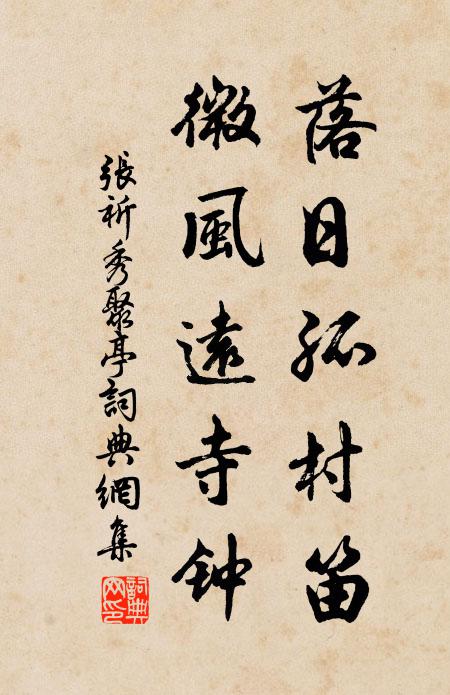 落日孤村笛
微風遠寺钟
張祈秀聚亭詞典網集
詞典網印